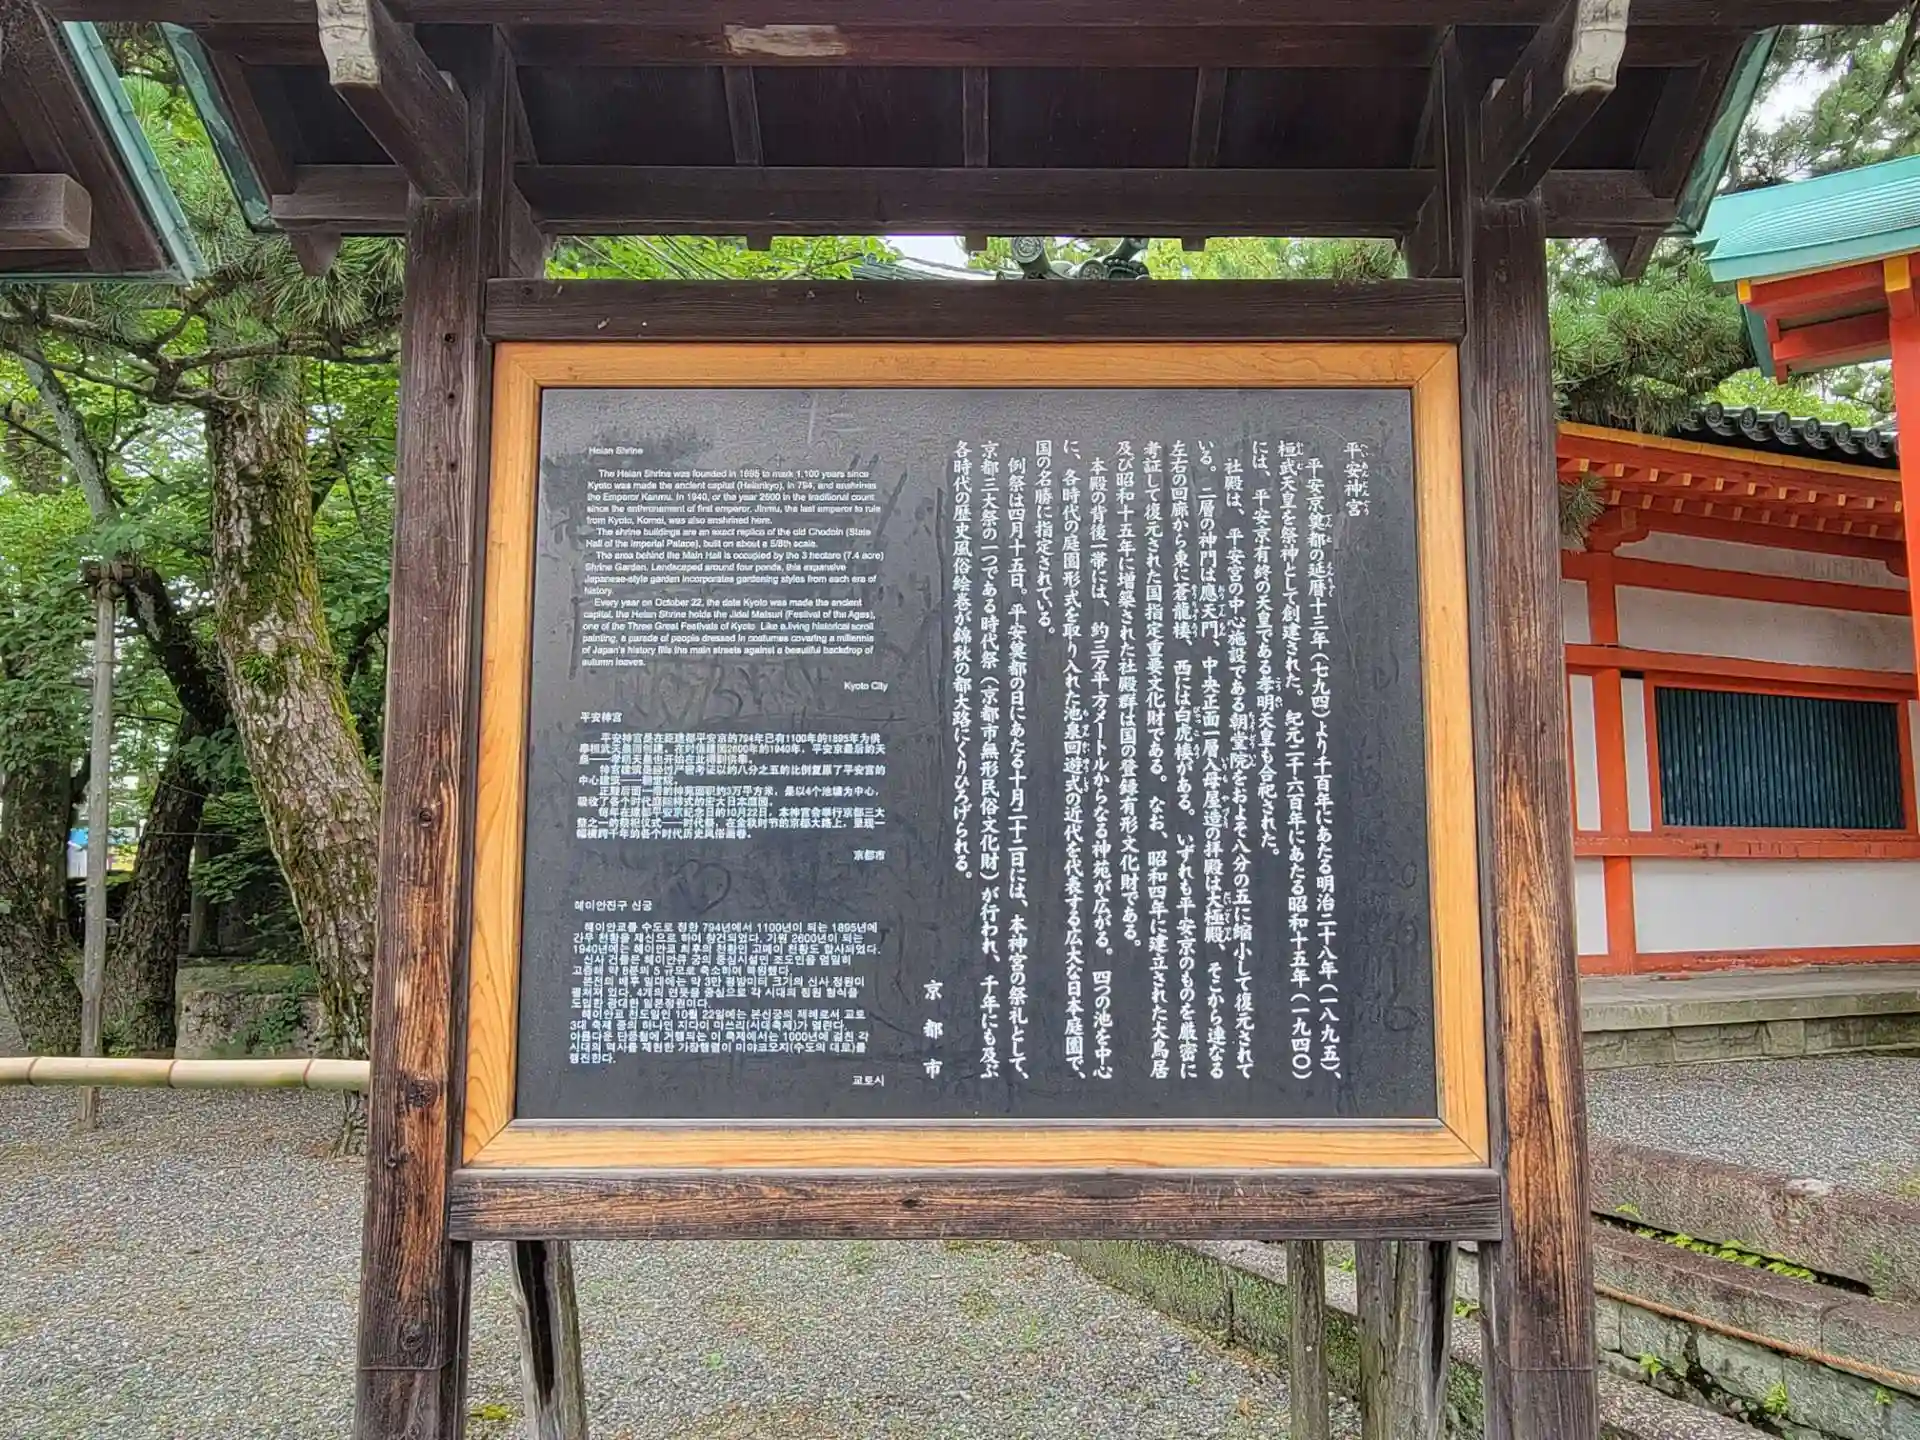 Heian Shrine
The Heian Shrine was founded in 1895 to mark 1,100 years since
Kyoto was made the ancient capital (Heiankyo), in 794, and enshrines
the Emperor Kanmu. In 1940, or the year 2600 in the traditional count
since the enthronement of first emperor, Jinmu, the last emperor to rule
from Kyoto, Komei, was also enshrined here.
The shrine buildings are an exact replica of the old Chodoin (State
Hall of the Imperial Palace), built on about a 5/8th scale.
The area behind the Main Hall is occupied by the 3 hectare (7.4 acre)
Shrine Garden. Landscaped around four ponds, this expansive
Japanese-style garden incorporates gardening styles from each era of
history.
Every year on October 22, the date Kyoto was made the ancient
capital, the Heian Shrine holds the Jidai Matsuri (Festival of the Ages),
one of the Three Great Festivals of Kyoto. Like a living historical scroll
painting, a parade of people dressed in costumes covering a millennia
of Japan's history fills the main streets against a beautiful backdrop of
autumn leaves.
Kyoto City
平安神宫
平安神宫是在距建都平安京的794年已有1100年的1895年为供
奉桓武天皇而创建。在时值建国2600年的1940年，平安京最后的天
皇——孝明天皇也开始在此得到供奉。
神宫建筑是经过严密考证以约八分之五的比例复原了平安宫的
中心建筑——朝堂院。
正殿后面一带的神苑面积约3万平方米，是以4个池塘为中心，
吸收了各个时代庭院样式的宏大日本庭园。
每年在建都平安京纪念日的10月22日，本神宫会举行京都三大
祭之一的祭祀仪式——时代祭，在金秋时节的京都大路上，呈现一
幅横跨千年的各个时代历史风俗画卷。
京都市
헤이안진구 신궁
헤이안쿄를 수도로 정한 794년에서 1100년이 되는 1895년에
간무 천황을 제신으로 하여 창건되었다. 기원 2600년이 되는
1940년에는 헤이안쿄 최후의 천황인 고메이 천황도 합사되었다.
신사 건물은 헤이안큐 궁의 중심시설인 조도인을 엄밀히
고증해 약 8분의 5 규모로 축소하여 복원했다.
본전의 배후 일대에는 약 3만 평방미터 크기의 신사 정원이
펼쳐져 있다. 4개의 연못을 중심으로 각 시대의 정원 형식을
도입한 광대한 일본정원이다.
헤이안쿄 천도일인 10월 22일에는 본신궁의 제례로서 교토
3대 축제 중의 하나인 지다이 마쓰리(시대축제)가 열린다.
아름다운 단풍철에 거행되는 이 축제에서는 1000년에 걸친 각
시대의 역사를 재현한 가장행렬이 미야코오지(수도의 대로)를
행진한다.
교토시
平安神宮
平安京奠都の延暦十三年（七九四）より千百年にあたる明治二十八年（一八九五）、
桓武天皇を祭神として創建された。紀元二千六百年にあたる昭和十五年（一九四〇）
には、平安京有終の天皇である孝明天皇も合祀された。
社殿は、平安宮の中心施設である朝堂院をおよそ八分の五に縮小して復元されて
いる。二層の神門は應天門、中央正面一層入母屋造の拝殿は大極殿、そこから連なる
左右の回廊から東に蒼龍楼、西には白虎楼がある。いずれも平安京のものを厳密に
考証して復元された国指定重要文化財である。なお、昭和四年に建立された大鳥居
及び昭和十五年に増築された社殿群は国の登録有形文化財である。
本殿の背後一帯には、約三万平方メートルからなる神苑が広がる。四つの池を中心
に、各時代の庭園形式を取り入れた池泉回遊式の近代を代表する広大な日本庭園で、
国の名勝に指定されている。
例祭は四月十五日。平安奠都の日にあたる十月二十二日には、本神宮の祭礼として、
京都三大祭の一つである時代祭（京都市無形民俗文化財）が行われ、千年にも及ぶ
各時代の歴史風俗絵巻が錦秋の都大路にくりひろげられる。
京都市